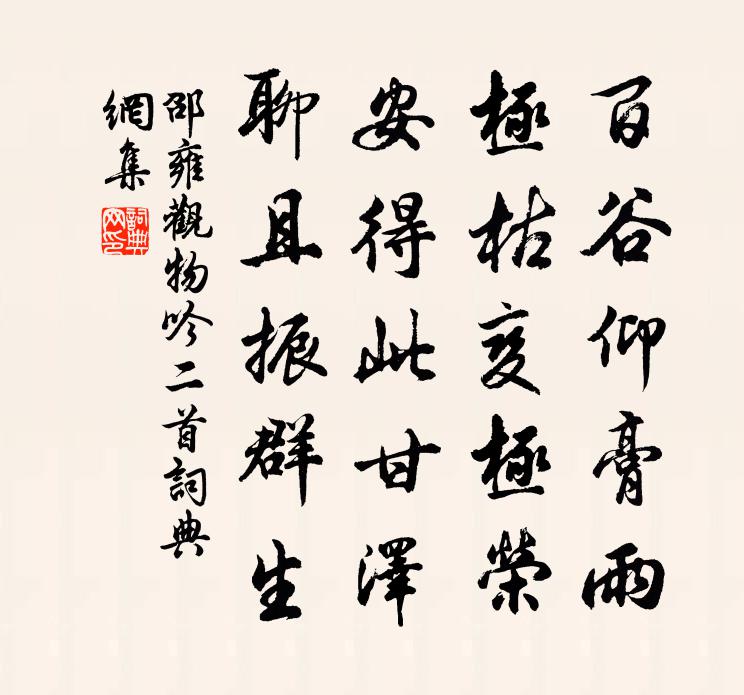 百谷仰膏雨
極枯变極榮
安得此甘澤
聊且振群生
邵雍觀物吟二首詞典
網集
詞典網印